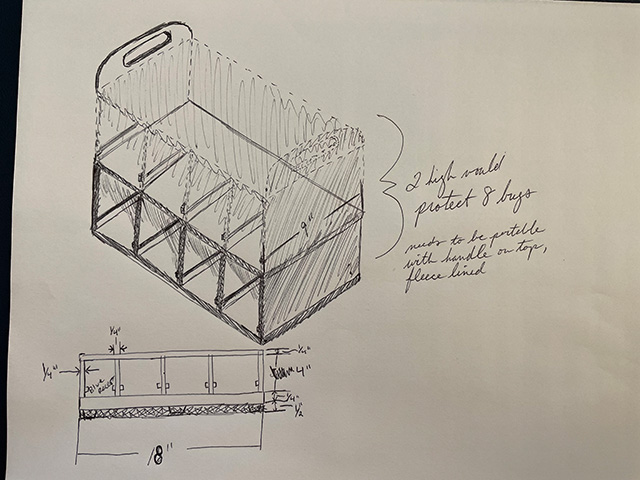 2 high would
protect 8 bugs
needs to be portable
with handle on top,
fleece lined
9"
1/4"
1/4"
1/4"
4"
1/4"
1/2
18"